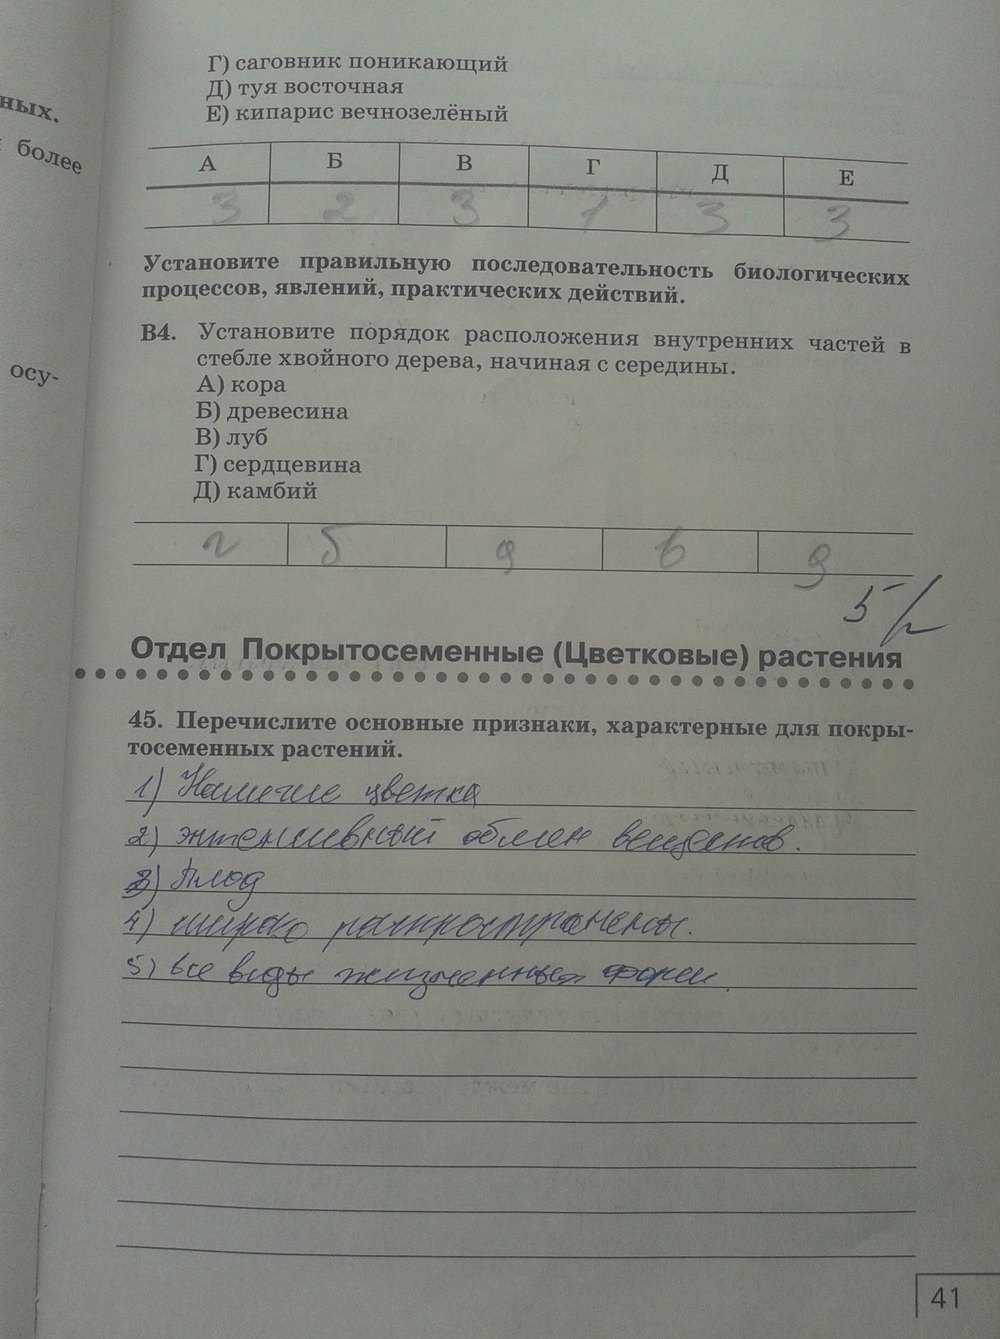 Г) саговник поникающий
Д) туя восточная
Е) кипарис вечнозелёный
ных.
более
А Б В Г Д Е
3 2 3 1 3 3
Установите правильную последовательность биологических
процессов, явлений, практических действий.
В4. Установите порядок расположения внутренних частей в
стебле хвойного дерева, начиная с середины.
осу-
А) кора
Б) древесина
В) луб
Г) сердцевина
Д) камбий
г б д в д
5
Отдел Покрытосеменные (Цветковые) растения
45. Перечислите основные признаки, характерные для покры-
тосеменных растений.
1) Наличие цветка
2) энтенсивный обмен веществ.
3) Плод
4) широко распространены.
5) все виды жизненных форм.
41